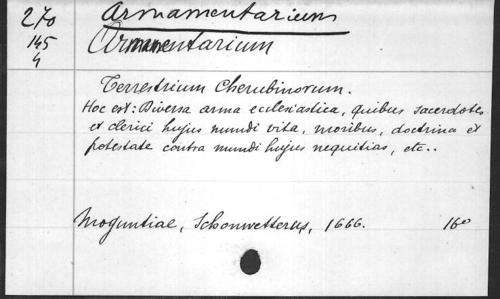 270 Armamentarium
145 Armamentarium
4
Terrestrium Cherubinorum.
Hoc est: Diversa arma ecclesiastica, quibus sacerdotes
et clerici hujus mundi vita, moribus, doctrina et
potestate contra mundi hujus nequitias, etc..
Moguntiae, Schonwetterus, 1666. 16°